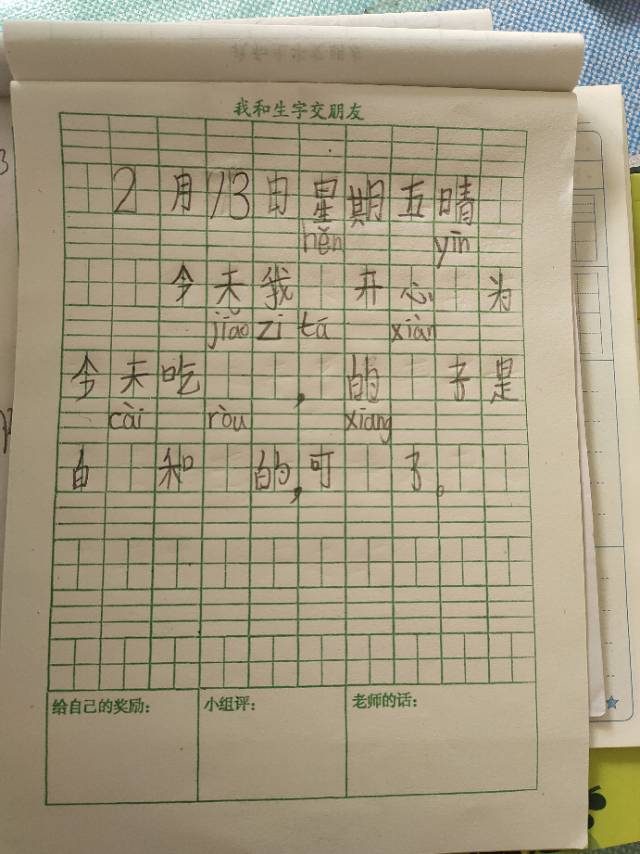 我和生字交朋友
2月13日星期五晴
hěn yīn
今天我开心为
jiǎo zi tā xiàn
今天吃，的子是
cài ròu xiāng
白和的，可了。
给自己的奖励： 小组评： 老师的话：